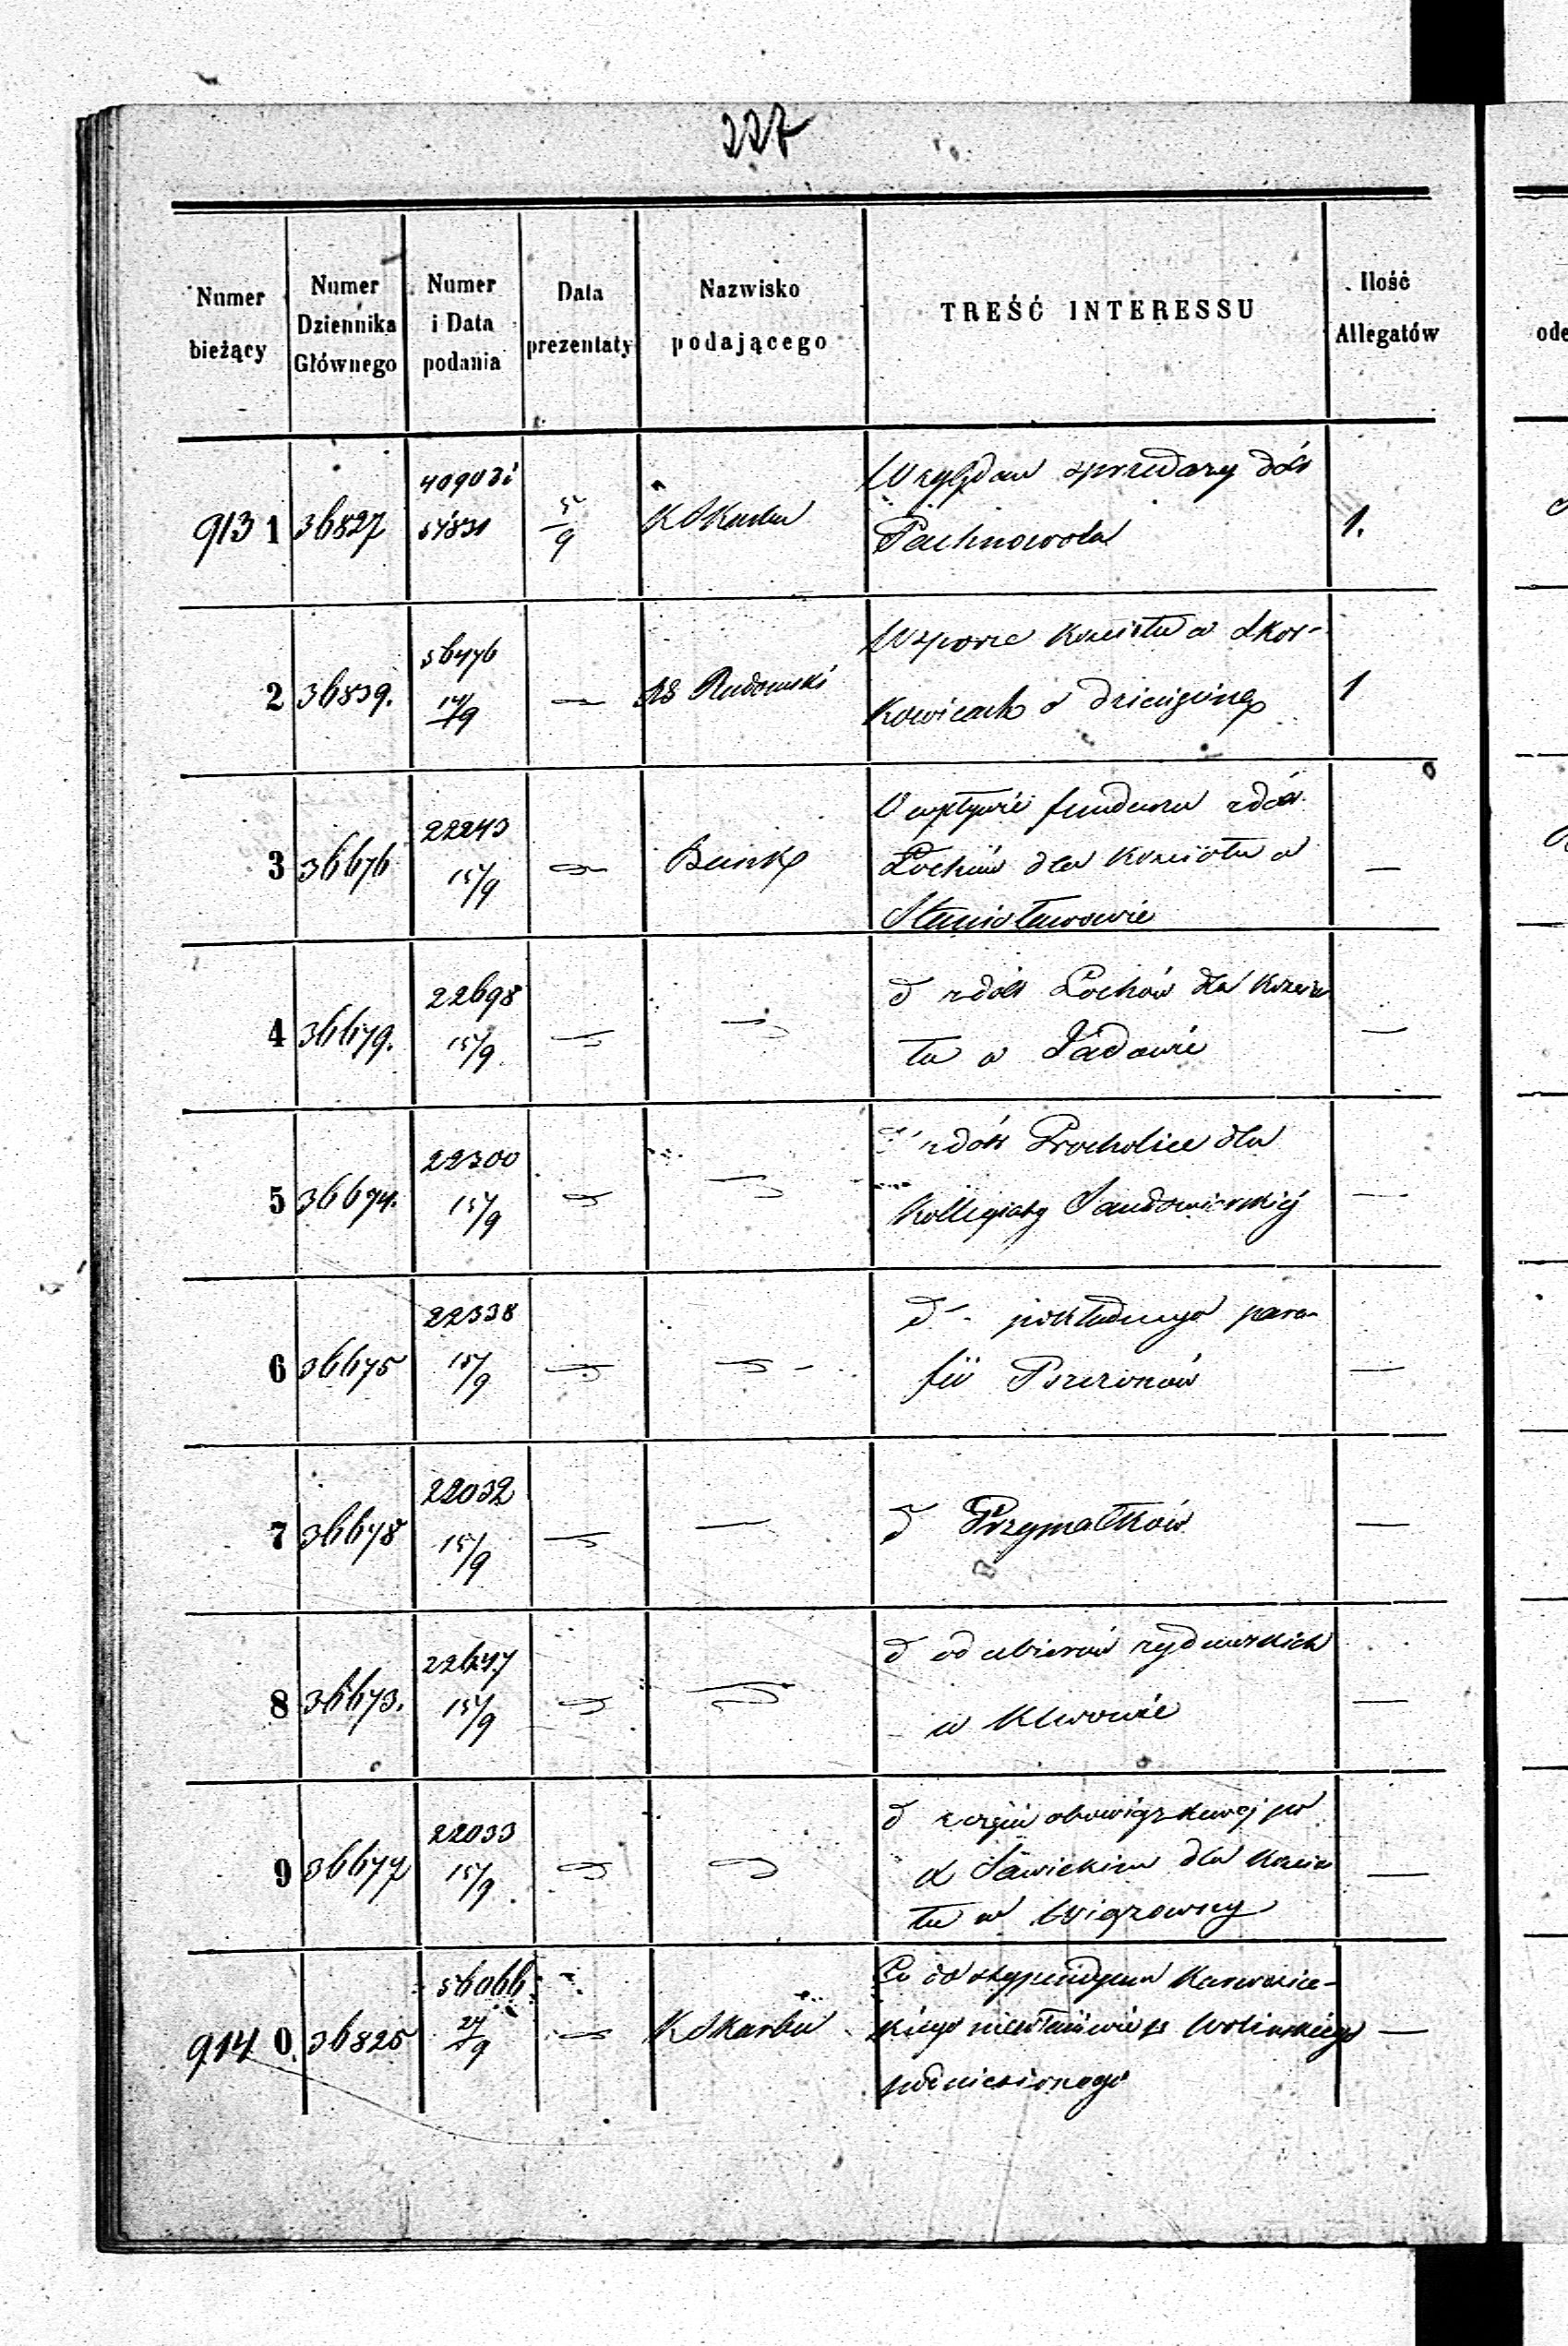 227
Numer bieżący
Numer Dziennika Głównego
Numer i Data podania
Data prezentaty
Nazwisko podającego
TREŚĆ INTERESSU
Ilość Allegatów
ode
9131 36827 5/9 KSkarbu
Względem sprzedaży dóbr
1.
2 36839. 56476 14/9 Rudowski
W sporze Kościoła w Skor-
Kowicach o dziesięcinę
1
3 36676 22243 15/9 Bank
O wpływie funduszu z dóbr
Łochów dla Kościoła w
Stanisławowie
—
4 36679. 22698 15/9
d z dóbr Łochów dla Kościo
ła w Jadowie
—
5 36674. 22300 15/9
z dóbr Procholice dla
Kollegiaty Sandomierskiej
—
6 36675 22338 15/9
d pokładnego para-
fii Pszczonów
—
7 36678 22032 15/9
d Przymałków
—
8 36673. 22647 15/9
d od ubiorów żydowskich
w Klwowie
—
9 36677 22033 15/9
d obowiązkowej po
X Sawickim dla Kościo
ła w Wiązowny
—
9140. 36825 56066 27/9 KSkarbu
Co do stypendyum
niewłaściwie p Wolińskiego
podniesionego
—